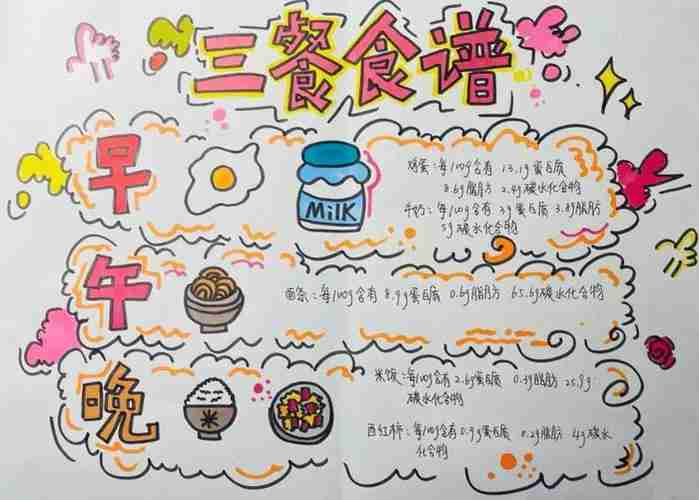 三餐食谱
早
MiLK
鸡蛋：每100g含有 13.1g蛋白质
8.6g脂肪 2.4g碳水化合物
牛奶：每100g含有 3g蛋白质 3.8g脂肪
5g碳水化合物
午
面条：每100g含有 8.9g蛋白质 0.6g脂肪 65.6g碳水化合物
晚
米饭：每100g含有 2.6g蛋白质 0.3g脂肪 25.9g
碳水化合物
西红柿：每100g含有0.9g蛋白质 0.2g脂肪 4g碳水
化合物